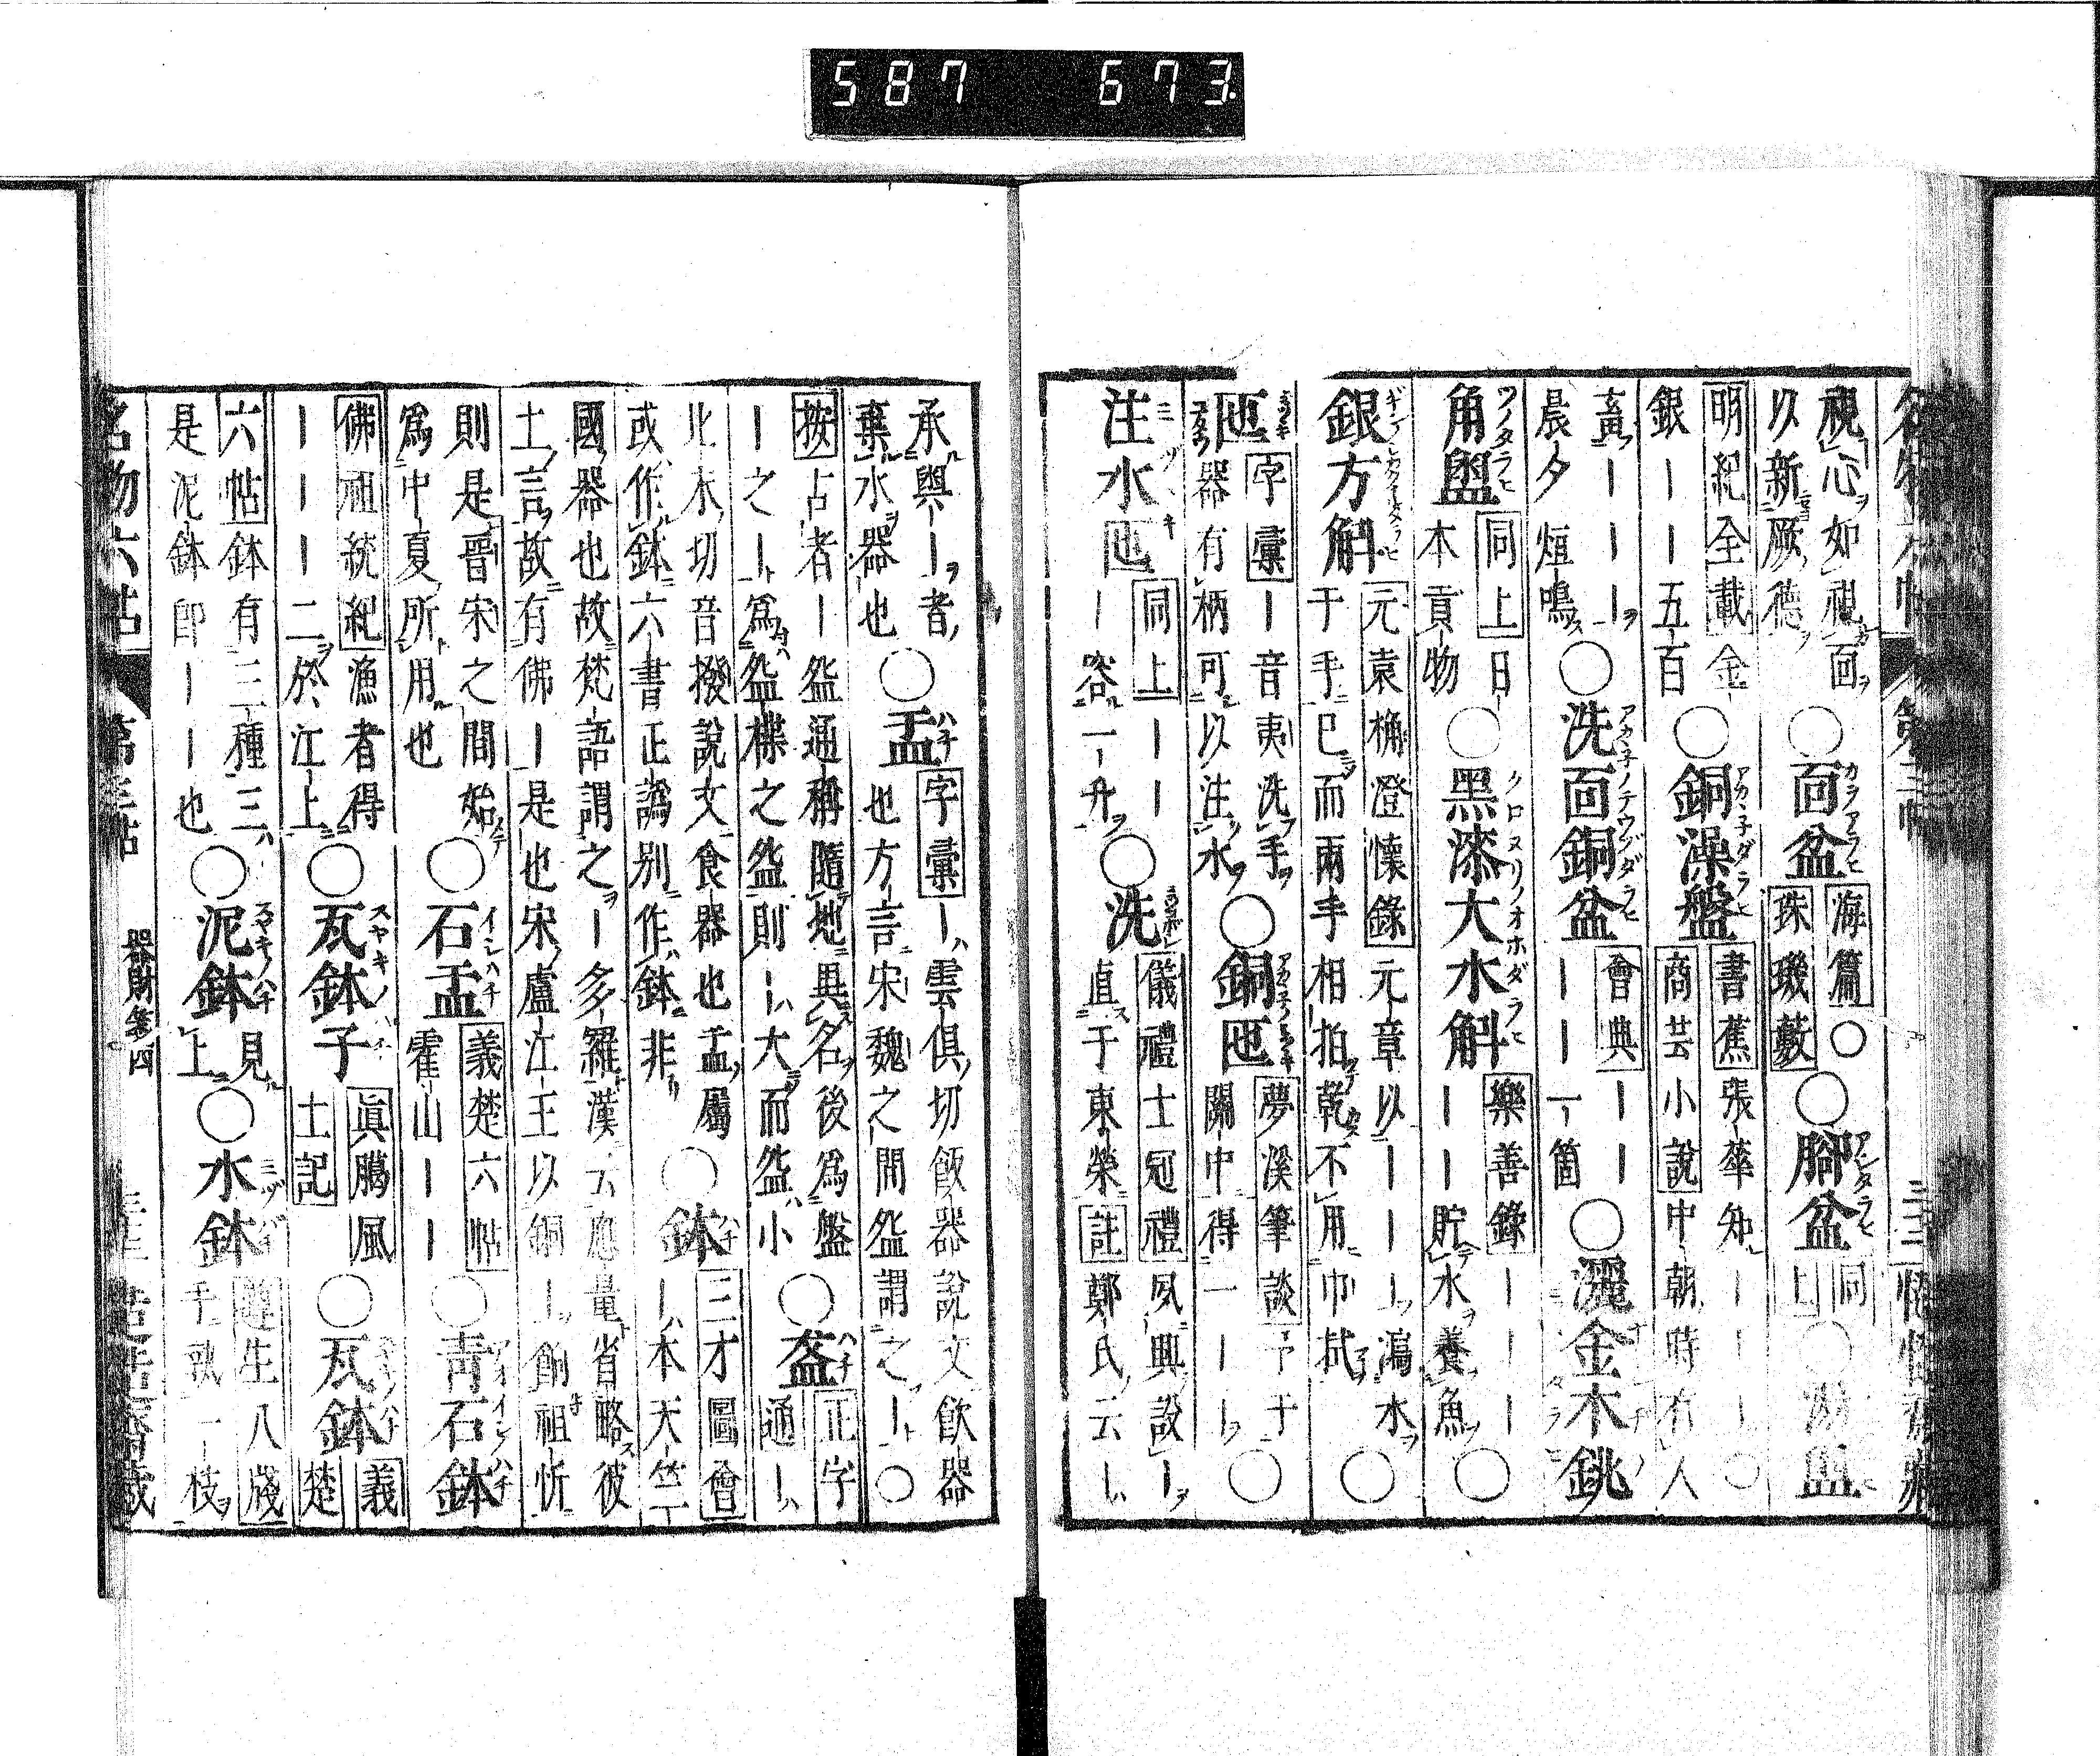 587 673
視心如視面
以新厥德
○面盆
海篇○
珠璣藪
○脚盆
同
上
○
盥
明紀全載金
銀｜｜五百
○銅澡盤
書蕉張華知｜｜｜○
商芸小說中朝時有人
畜｜｜｜
晨夕烜鳴
○洗面銅盆
會典｜｜
｜｜一箇
○灑金木銚
角盥
同上日
本貢物
○黑漆大水斛
樂善錄｜｜｜
｜｜貯水養魚
○
銀方斛
元袁桷澄懷錄元章以｜｜｜瀉水
于手手已而兩手相拍乾不用巾拭
○
匜
字彙｜音夷洗手
器有柄可以注水
○銅匜
夢溪筆談予于
關中得一｜｜
○
注水匜
同上｜｜
｜容一升
○洗
儀禮士冠禮夙興設｜
直于東榮註鄭氏云｜
承與｜者
棄水器也
○盂
字彙｜雲俱切飯器說文飲器
也方言宋魏之間㿿謂之｜○
按占者｜㿿通稱隨地異名後爲盤
｜之｜爲㿿楪之㿿則｜大而㿿小
○盋
正字
通｜
北末切音撥說文食器也盂屬
或作鉢六書正譌別作鉢非
○鉢
三才圖會
｜本天竺
國器也故梵語謂之｜多羅漢云應量省略彼
土言故有佛｜是也宋盧江王以銅｜餉祖忻
則是晉宋之間始
爲中夏所用也
○石盂
義楚六帖
霍山｜｜
○靑石鉢
佛祖統紀漁者得
｜｜｜二於江上
○瓦鉢子
眞臈風
土記
○瓦鉢
義
楚
六帖鉢有三種三
是泥鉢卽｜｜也
○泥鉢
見
上
○水鉢
遵生八牋
手執一枝
名物六帖
第三帖
器財箋四